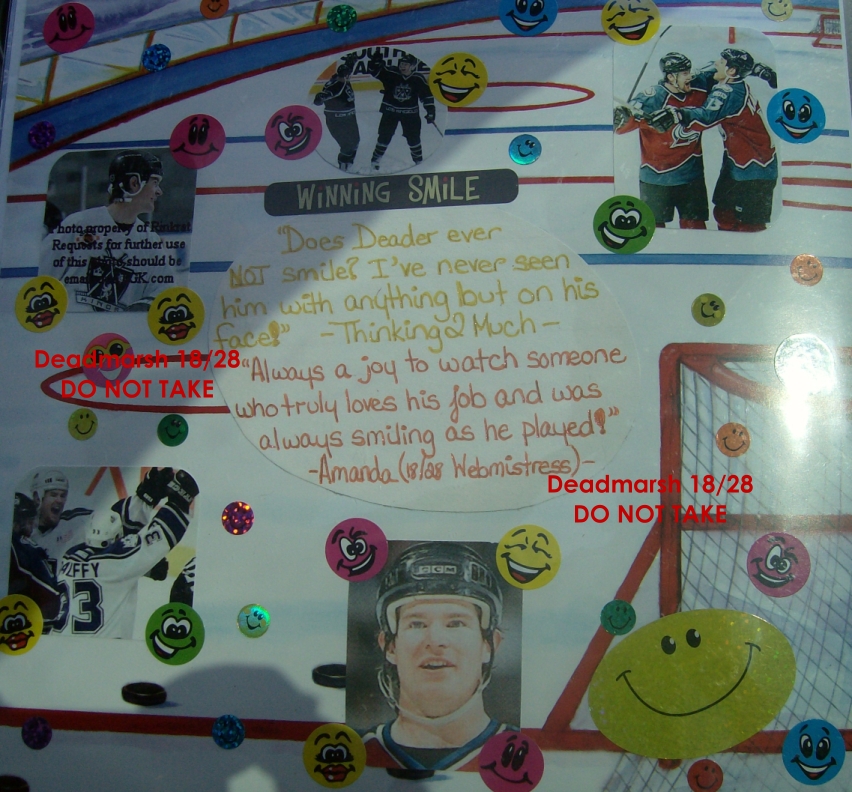 WINNING SMILE
"Does Deader ever
NOT smile? I've never seen
him with anything but on his
face!" -Thinking 2 Much-
"Always a joy to watch someone
who truly loves his job and was
always smiling as he played!"
-Amanda (18/28 Webmistress)-
Photo property of Rinkrat
Requests for further use
of this photo should be
GK.com
KINGS
Deadmarsh 18/28
DO NOT TAKE
Deadmarsh 18/28
DO NOT TAKE
ALFFY
33
CCM